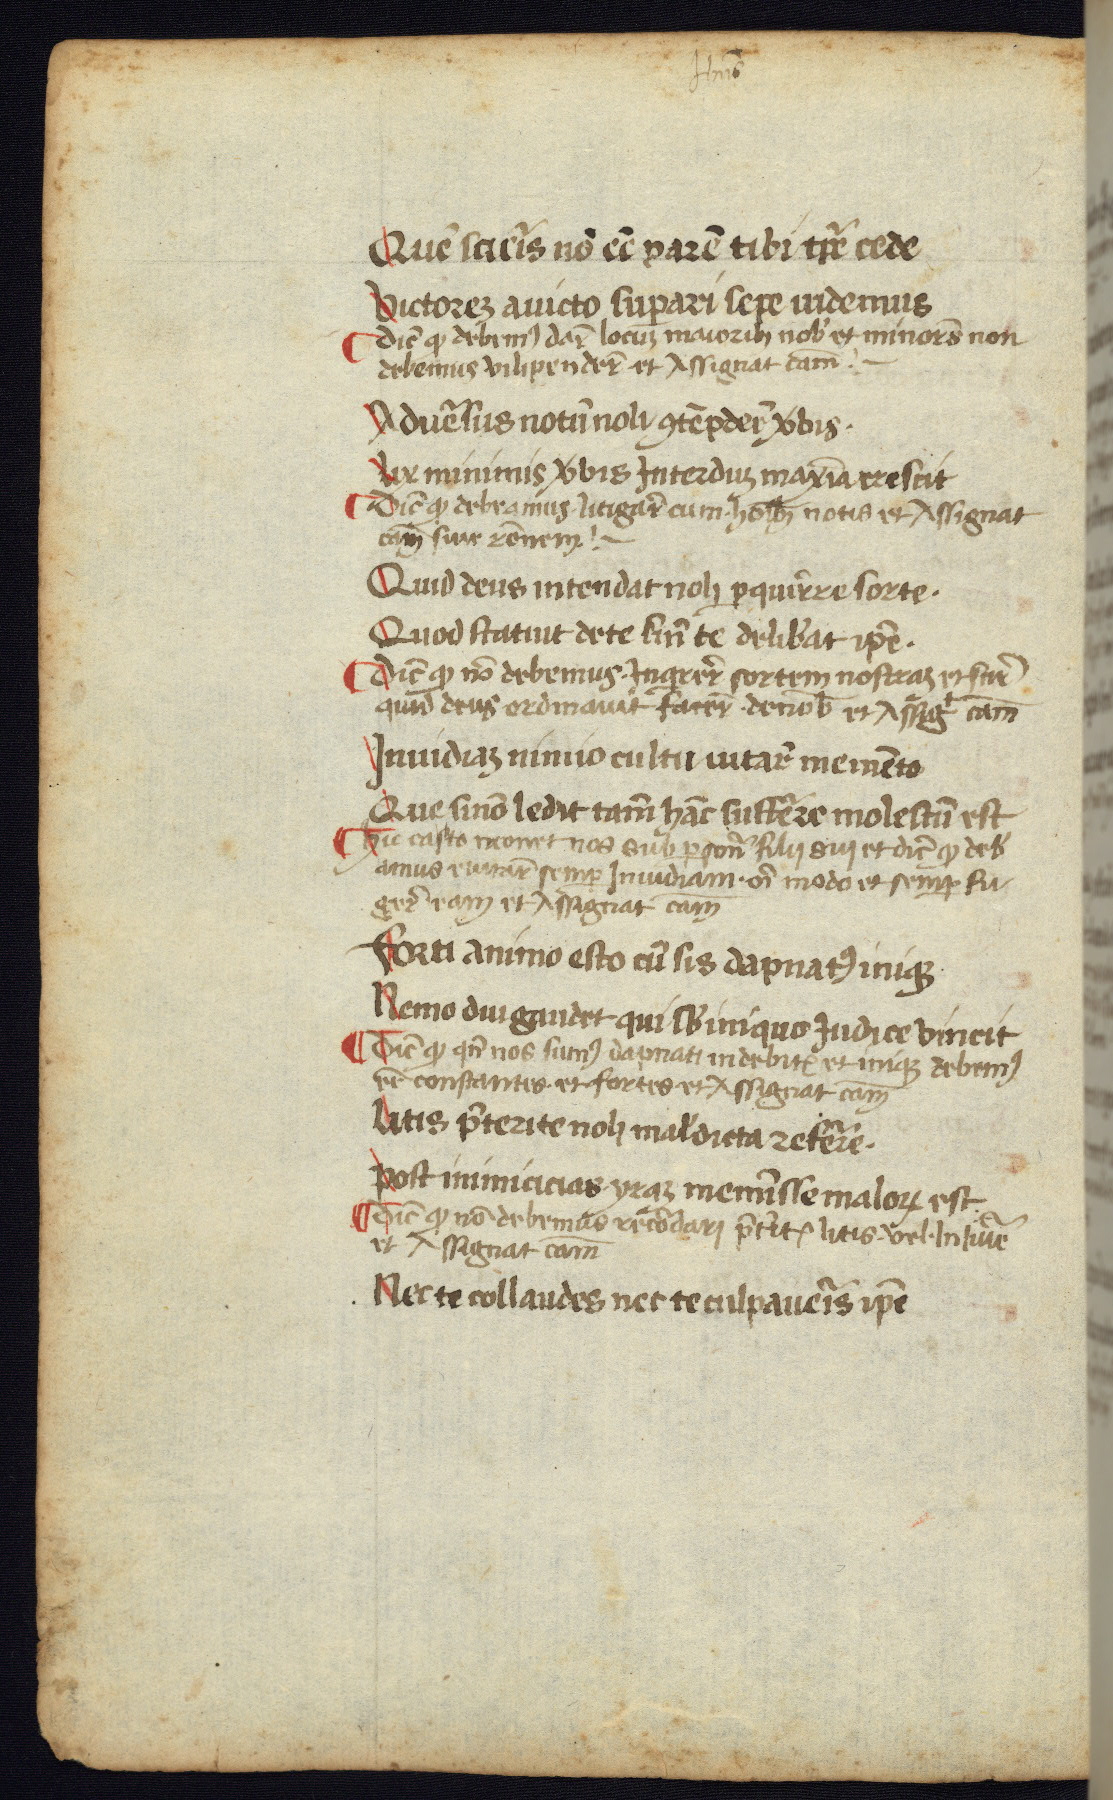 Quē sciēis nō eē parē tibi tp̄r̄ cede
Victorez a uicto supari sepe uidemus
Dic̄ ꝙ debemꝰ dar̄ locuz maiorib nob̄ et minores non
debemus vilipender̄ et Assignat cam̄
Aduēsus notū noli ꝯtēpder̄ v̄bis.
Nr̄ minimis v̄bis Interduz maxīa crescit
Dic̄ ꝙ debeamus litigar̄ cum hoīb notis et Assignat
cam̄ siue rōnem
Quid deus intendat noli pquirre sorte.
Quod statuit de te sin̄ te delib̄at ip̄e.
Dic̄ ꝙ nō debemus Inqrer̄ sortem nostraz et scir̄
quid deus ordinauit facer̄ de nob̄ et Assigᵗ cam̄
Inuidiaz nimio cultu uitar̄ memēto
Que sinō ledit tam̄ hāc sufferre molestū est
Hic casto monet nos sub psōn̄ filij sui et dic̄ ꝙ deb̄
amus euitar̄ semp Inuidiam oī modo et semp fu
ger̄ eam et Assignat cam̄
Forti animo esto cū sis dapnatꝰ iniq̄
Nemo diu gaudet qui sb̄ iniquo Judice vincit
Dic̄ ꝙ qn̄ nos sumꝰ dapnati indebitꝭ et iniq̄ debemꝰ
eē constantes et fortes et Assignat cam̄
Litis p̄terite noli mal̄dicta refēre.
post inimicicias yraz meminisse maloꝝ est
Dic̄ ꝙ nō debemus recōdari p̄t̄itꝭ litis vel
et Assignat cam̄
Nec te collaudes nec te culpauēis ip̄e